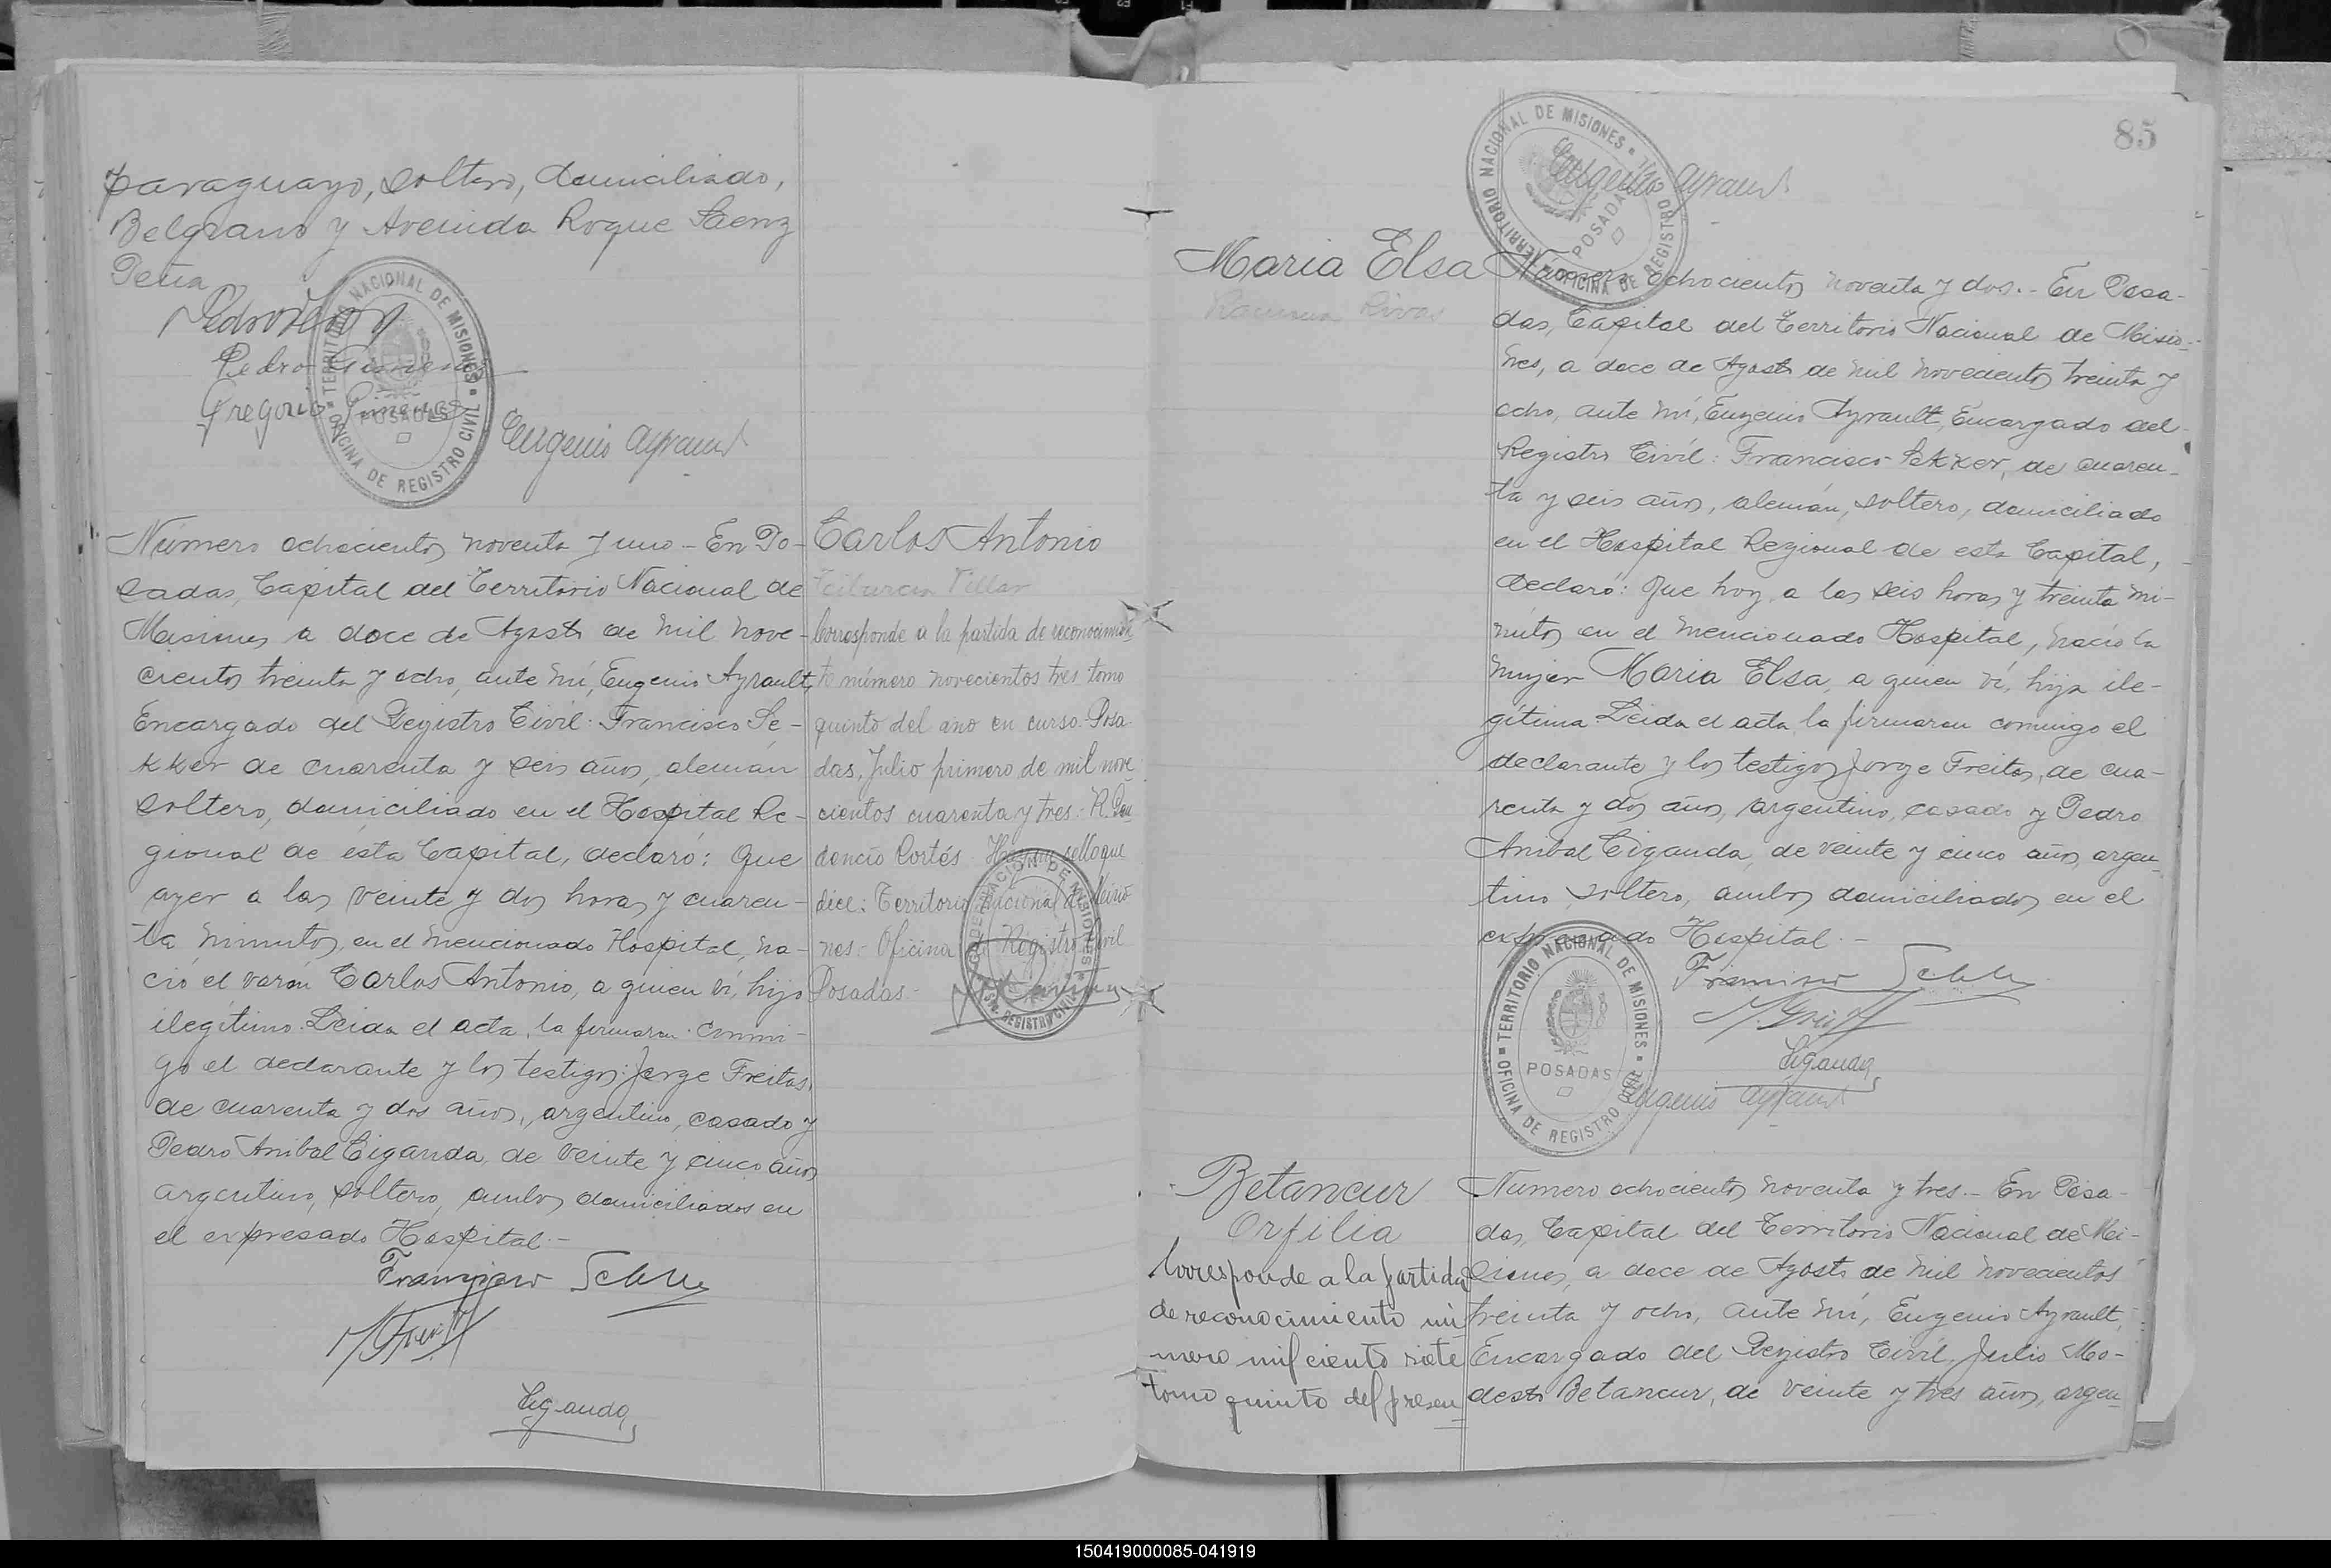 paraguayo, soltero, domiciliado,
Belgrano y Avenida Roque Saenz
Peña
Pedro
Pedro Gimenez
Gregorio Gimenez
Eugenio Ayrault
TERRITORIO NACIONAL DE MISIONES
POSADAS
OFICINA DE REGISTRO CIVIL
Número ochocientos noventa y uno - En Po-
sadas, Capital del Territorio Nacional de
Misiones a doce de Agosto de mil nove-
cientos treinta y ocho, ante mí, Eugenio Ayrault,
Encargado del Registro Civil: Francisco Se-
kker de cuarenta y seis años, alemán
soltero, domiciliado en el Hospital Re-
gional de esta Capital, declaró: Que
ayer a las veinte y dos horas y cuaren-
ta minutos, en el mencionado Hospital, na-
ció el varón Carlos Antonio, a quien ví, hijo
ilegítimo. Leida el acta, la firmaron conmi-
go el declarante y los testigos: Jorge Freitas,
de cuarenta y dos años, argentino, casado y
Pedro Anibal Ciganda, de veinte y cinco años
argentino, soltero, ambos domiciliados en
el expresado Hospital.-
Francisco Sekker
Ciganda
Carlos Antonio
Tiburcia Villar
Corresponde a la partida de reconocimien
to número novecientos tres tomo
quinto del año en curso. Posa
das, Julio primero de mil nove
cientos cuarenta y tres.- R. Pru
dencio Cortés Hay un sello que
dice: Territorio Nacional de Misio
nes - Oficina de Registro Civil
Posadas.-
85
TERRITORIO NACIONAL DE MISIONES
POSADAS
OFICINA DE REGISTRO
Eugenio Ayrault
Maria Elsa
Ramona Rivas
Número ochocientos noventa y dos.- En Posa-
das, Capital del Territorio Nacional de Misio-
nes, a doce de Agosto de mil novecientos treinta y
ocho, ante mí, Eugenio Ayrault, Encargado del
Registro Civil: Francisco Sekker, de cuaren-
ta y seis años, alemán, soltero, domiciliado
en el Hospital Regional de esta Capital,
declaró: Que hoy, a las seis horas y treinta mi-
nutos en el mencionado Hospital, nació la
mujer Maria Elsa, a quien ví, hija ile-
gítima. Leida el acta, la firmaron conmigo el
declarante y los testigos Jorge Freitas, de cua-
renta y dos años, argentino, casado y Pedro
Anibal Ciganda, de veinte y cinco años, argen-
tino soltero, ambos domiciliados en el
expresado Hospital.-
Francisco Sekker
Ciganda
Eugenio Ayrault
TERRITORIO NACIONAL DE MISIONES
POSADAS
OFICINA DE REGISTRO CIVIL
Betancur
Orfilia
Corresponde a la partida
de reconocimiento nú
mero mil ciento siete
tomo quinto del presen
Número ochocientos noventa y tres.- En Posa-
das, Capital del Territorio Nacional de Mi-
siones, a doce de Agosto de mil novecientos
treinta y ocho, ante mí, Eugenio Ayrault,
Encargado del Registro Civil, Julio Mo-
desto Betancur, de veinte y tres años, argen-
150419000085-041919